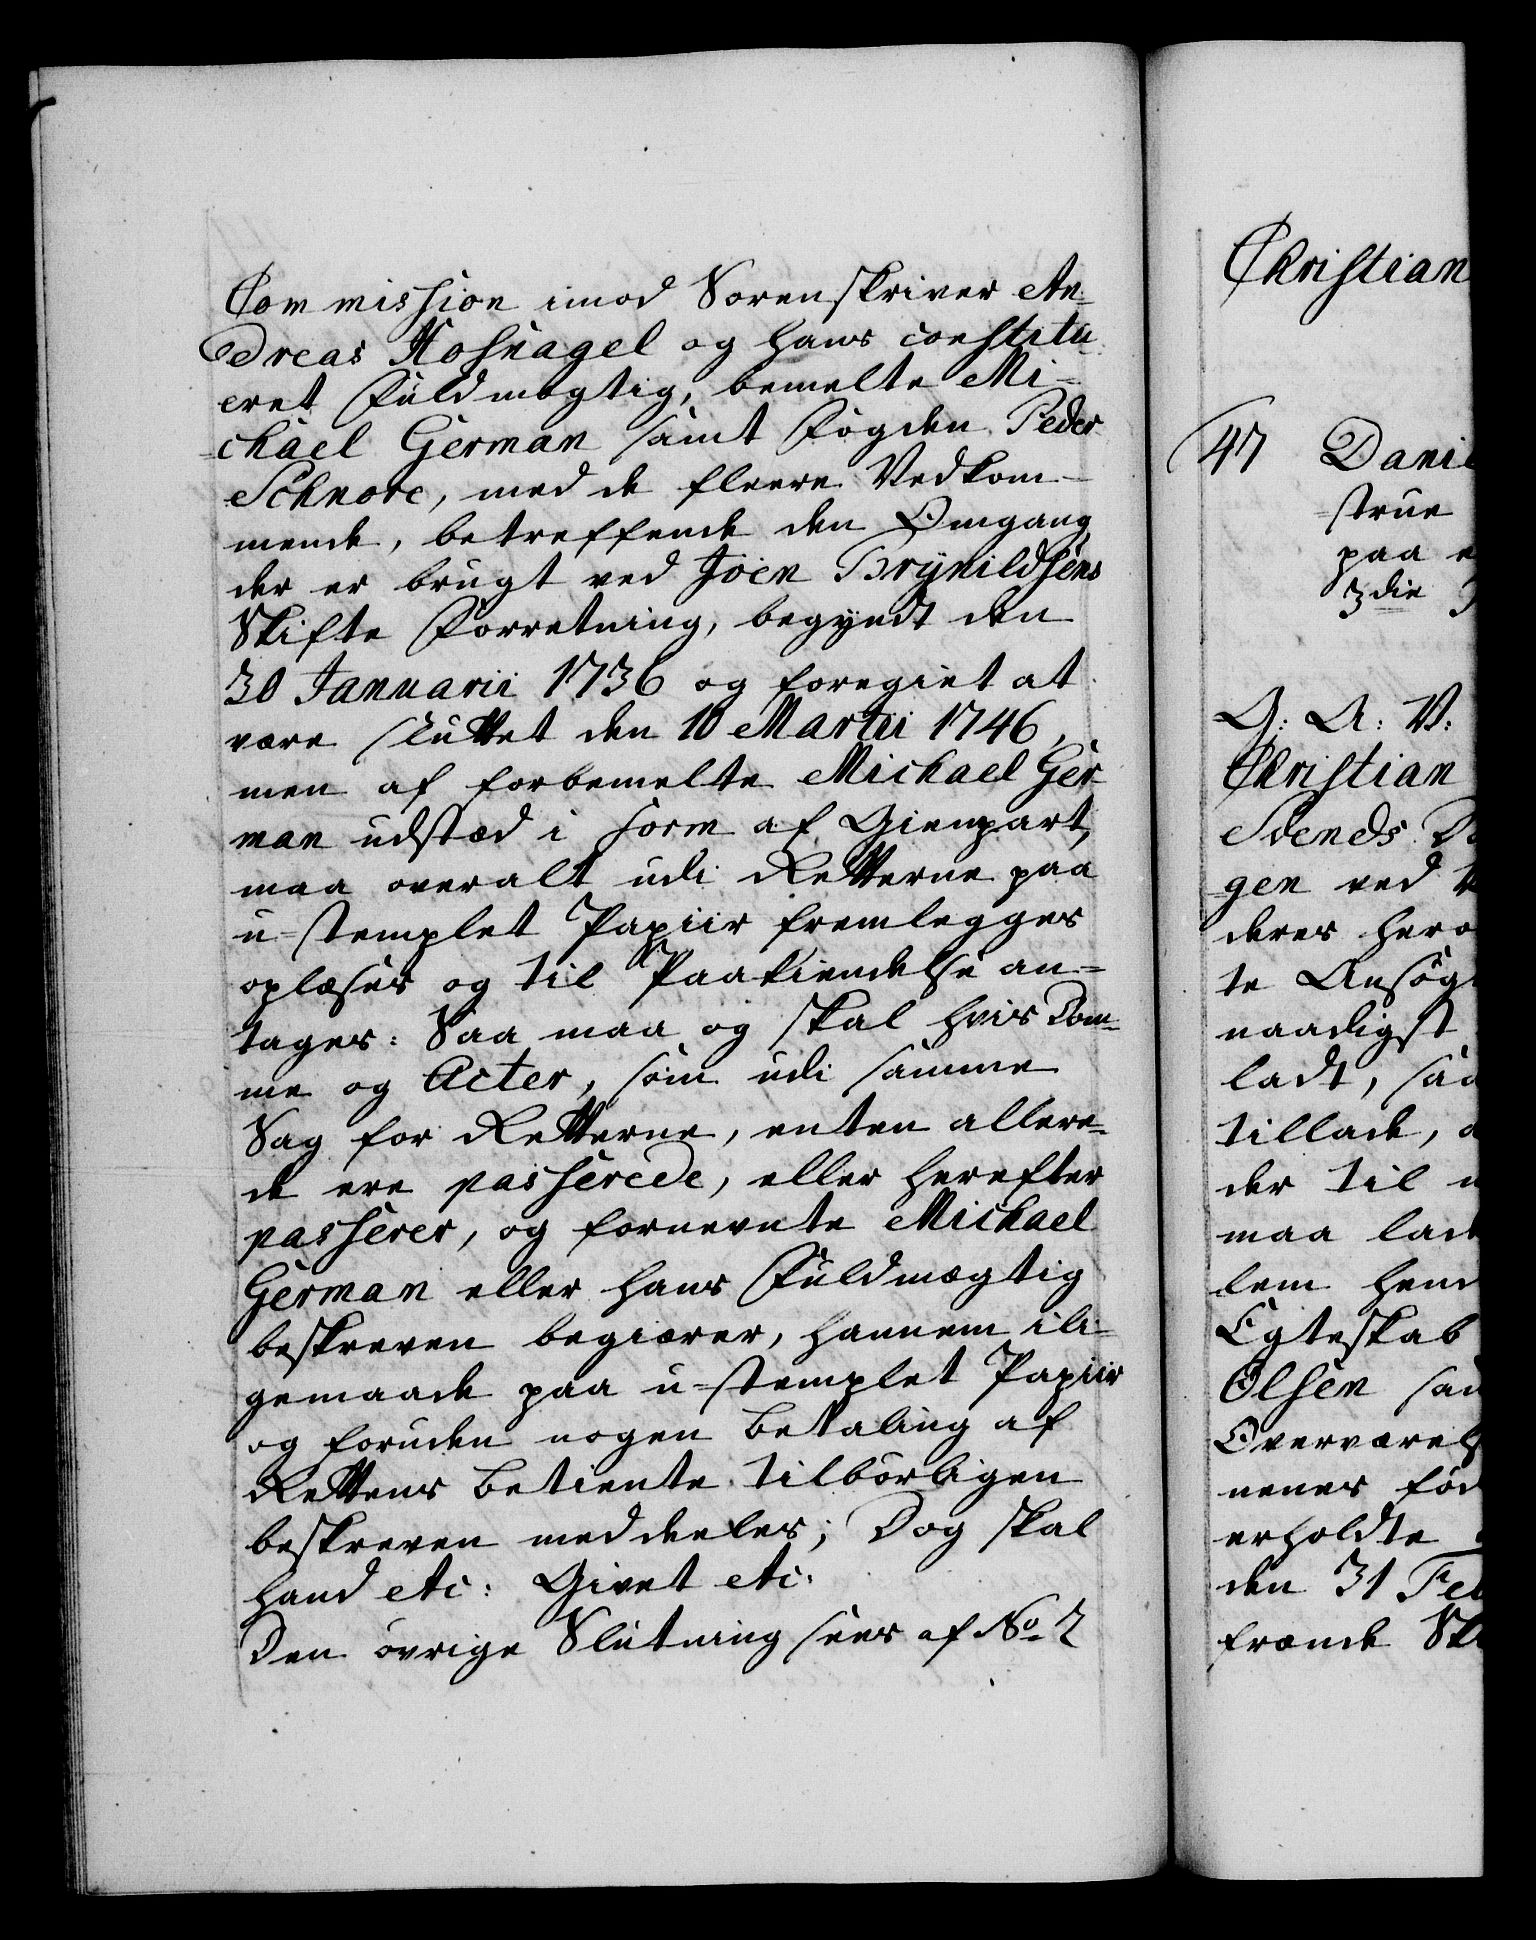 Commission imod Sorenskriver An=
dreas Hofnagel og hans constitu=
eret Fuldmægtig, bemelte Mi=
chael German samt Fogden Peder
Schnore, med de fleere Vedkom=
mende, betreffende den Omgang,
der er brugt ved Joen Brynildsens
Skifte Forretning, begyndt den
30 Januarii 1736 og foregivet at
være sluttet den 10 Martii 1746,
men af forbemelte Michael Ger=
man udstæd i Form af Gienpart,
maa overalt udi Retterne paa
u=stemplet Papiir fremlegges
oplæses og til Paakiendelse an=
tages: Saa maa og skal hvis Dom=
me og Acter, som udi samme
Sag for Retterne, enten allere=
de ere passerede, eller herefter
passerer, og fornevnte Michael
German eller hans Fuldmægtig
beskreven begiærer, hannem ili=
gemaade paa u=stemplet Papiir
og foruden nogen Betaling af
Rettens Betiente tilbørligen
beskreven meddeeles; Dog skal
hand etc: Givet etc:
Den øvrige Slutning sees af No 2
Christian
47 Dani
strue
paa
3die
G: A: V:
Christian
Svends
gen ved
deres her
te Ansøg
naadigst
ladt, saa
tillade,
der til
maa lad
lem hend
Egteskab
Olsen sam
Overværels
nenes fød
erholdte
den 31 Feb
frænde Sk